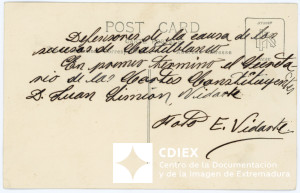 POST CARD
Defensores de la causa de las
sucesos de Castilblanco
En primer termino el Secreta
rio de las Cortes Constituyentes
D. Juan Simeon Vidarte
Foto E. Vidarte
CDIEX
Centro de la Documentación
y de la Imagen de Extremadura